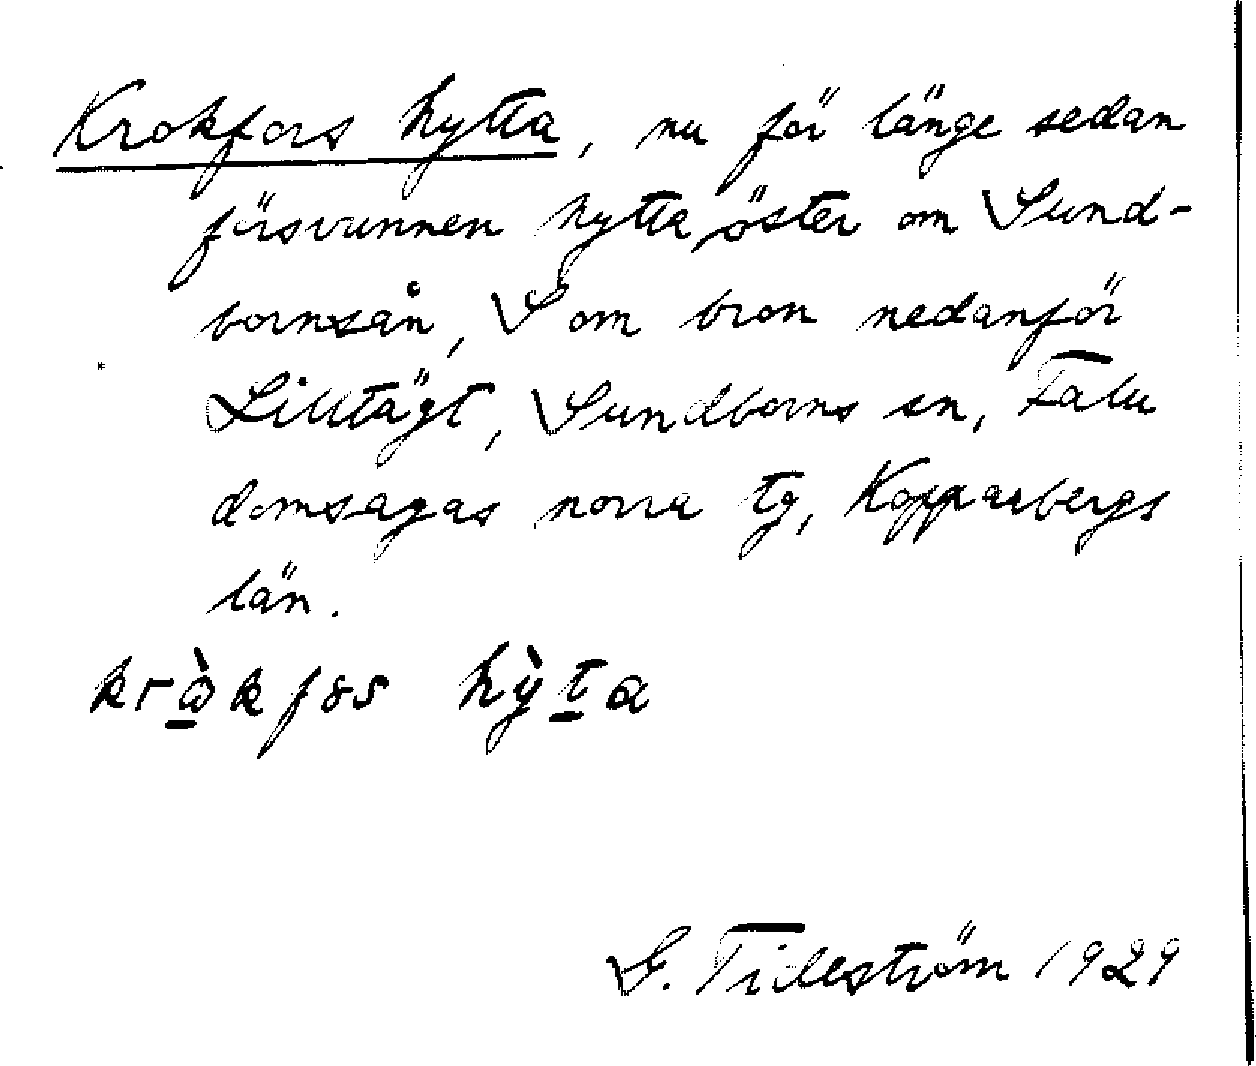 Krokfors hytta, nu för länge sedan
försvunnen hytta, öster om Sund-
bornsån, S om bron nedanför
Lilltägt, Sundborns sn, Falu
domsagas norra tg, Kopparbergs
län.
hỳta
G. Tilleström 1929